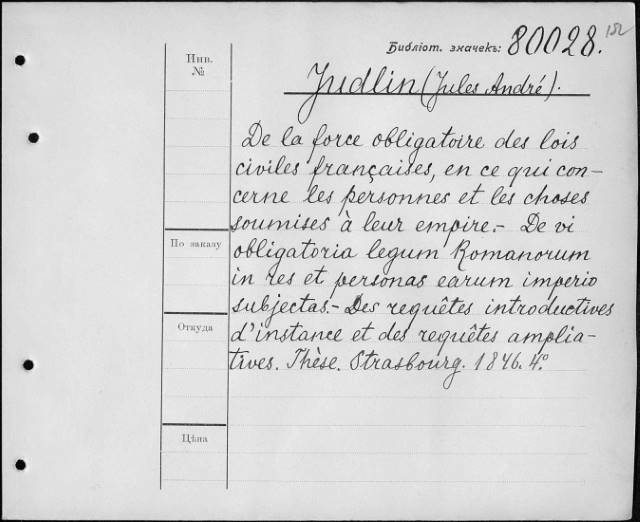 152
Библіот. значекъ: 80028.
Инв.
№
Judlin (Jules André).
De la force obligatoire des lois
civiles françaises, en ce qui con-
cerne les personnes et les choses
soumises à leur empire.- De vi
По заказу
obligatoria legum Romanorum
in res et personas earum imperio
subjectas.- Des requêtes introductives
Откуда
d'instance et des requêtes amplia-
tives. Thèse. Strasbourg. 1846. 4°.
Цѣна